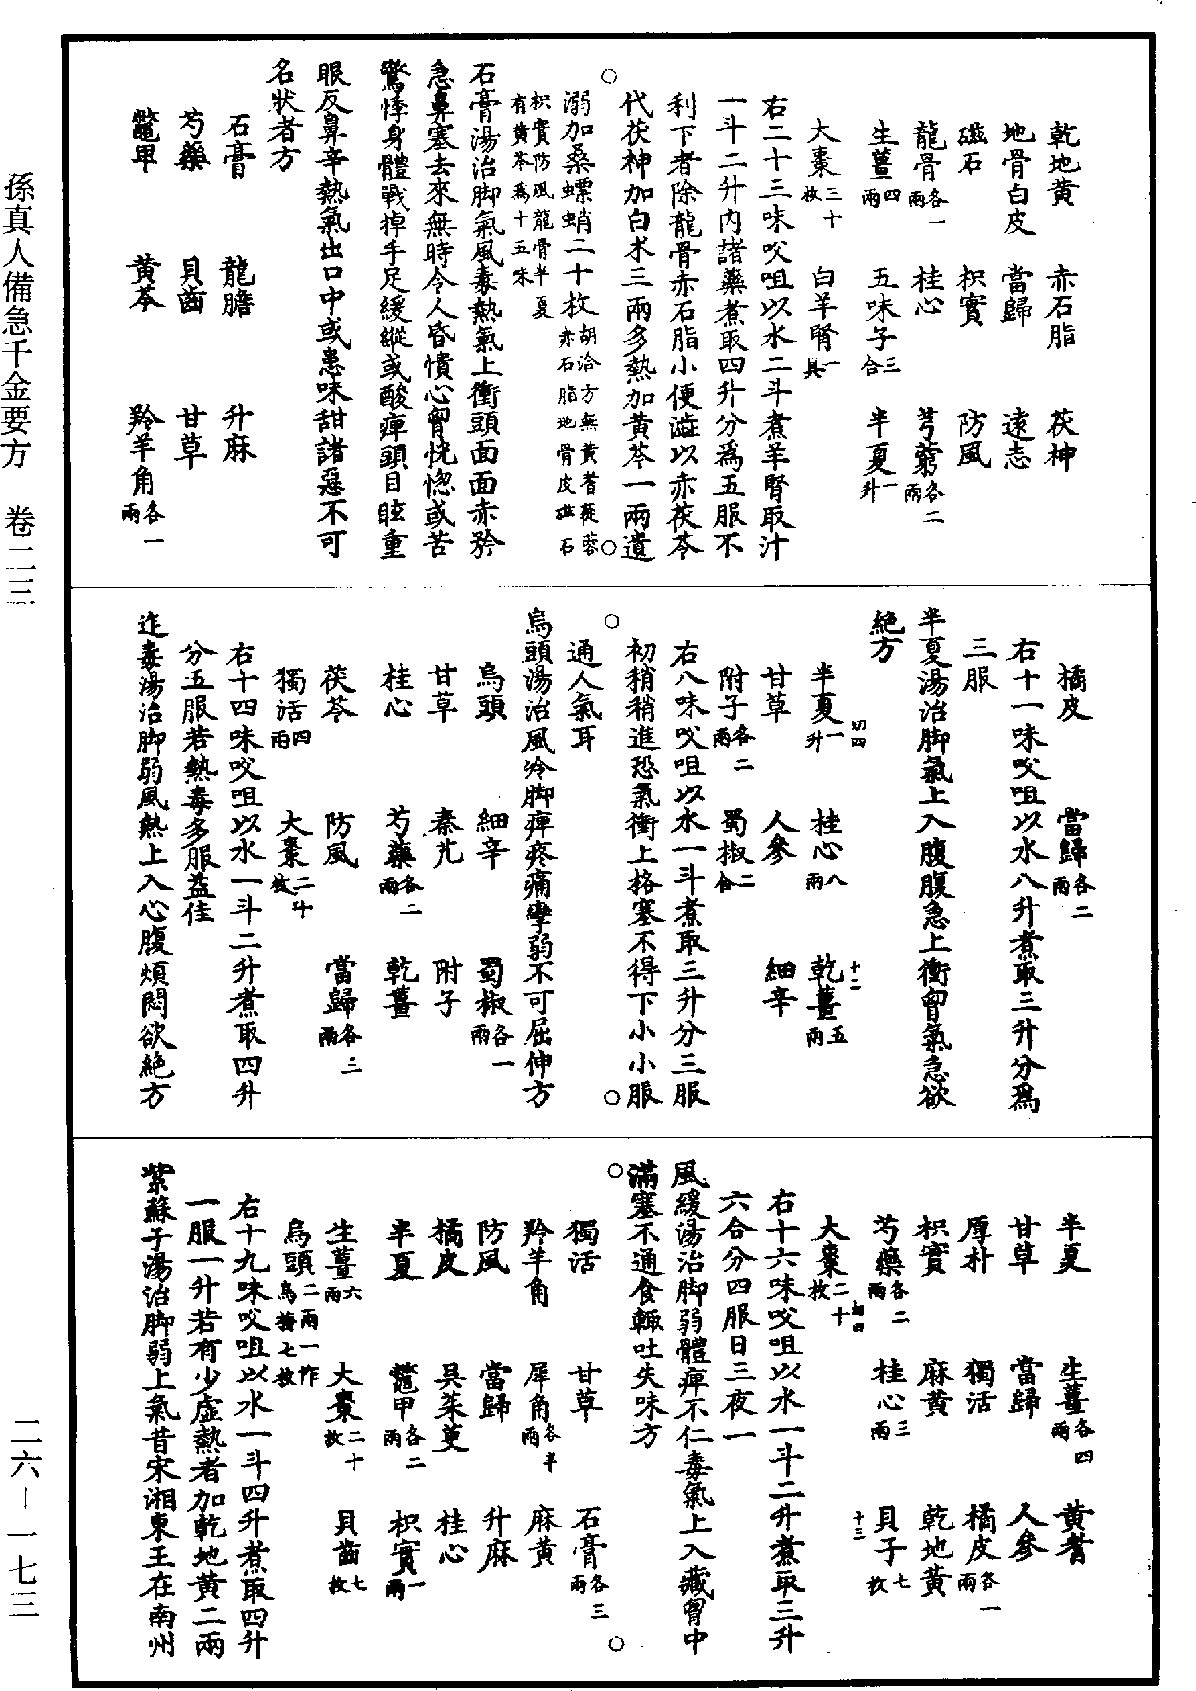 孫真人備急千金要方　卷二三
二六－一七三
乾地黃　赤石脂　茯神
地骨白皮　當歸　遠志
磁石　枳實　防風
龍骨各一兩　桂心　芎藭各二兩
生薑四兩　五味子三合　半夏一升
大棗三十枚　白羊腎一具
右二十三味㕮咀以水二斗煮羊腎取汁
一斗二升內諸藥煮取四升分為五服不
利下者除龍骨赤石脂小便澁以赤茯苓
代茯神加白朮三兩多熱加黃芩一兩遺
溺加桑螵蛸二十枚胡洽方無黃耆蓯蓉赤石脂地骨皮磁石
枳實防風龍骨半夏有黃芩為十五味
石膏湯治脚氣風毒熱氣上衝頭面面赤矜
急鼻塞去來無時令人昏憒心胷恍惚或苦
驚悸身體戰掉手足緩縱或酸痺頭目眩重
眼反鼻辛熱氣出口中或患味甜諸惡不可
名狀者方
石膏　龍膽　升麻
芍藥　貝齒　甘草
鼈甲　黃芩　羚羊角各一兩
橘皮　當歸各二兩
右十一味㕮咀以水八升煮取三升分為
三服
半夏湯治脚氣上入腹腹急上衝胷氣急欲
絕方
半夏一升切四　桂心八兩　乾薑五兩十二
甘草　人參　細辛
附子各二兩　蜀椒二合
右八味㕮咀以水一斗煮取三升分三服
初稍稍進恐氣衝上格塞不得下小小服
通人氣耳
烏頭湯治風冷脚痺疼痛攣弱不可屈伸方
烏頭　細辛　蜀椒各一兩
甘草　秦艽　附子
桂心　芍藥各二兩　乾薑
茯苓　防風　當歸各三兩
獨活四兩　大棗二十枚
右十四味㕮咀以水一斗二升煮取四升
分五服若熱毒多服益佳
迮毒湯治脚弱風熱上入心腹煩悶欲絕方
半夏　生薑各四兩　黃耆
甘草　當歸　人參
厚朴　獨活　橘皮各一兩
枳實　麻黃　乾地黃
芍藥各二兩　桂心三兩　貝子七枚十三
大棗二十枚切四
右十六味㕮咀以水一斗二升煮取三升
六合分四服日三夜一
風緩湯治脚弱體痺不仁毒氣上入藏胷中
滿塞不通食輒吐失味方
獨活　甘草　石膏各三兩
羚羊角　犀角各半兩　麻黃
防風　當歸　升麻
橘皮　吳茱萸　桂心
半夏　鼈甲各二兩　枳實一兩
生薑六兩　大棗二十枚　貝齒七枚
烏頭二兩一作烏梅七枚
右十九味㕮咀以水一斗四升煮取四升
一服一升若有少虛熱者加乾地黃二兩
紫蘇子湯治脚弱上氣昔宋湘東王在南州